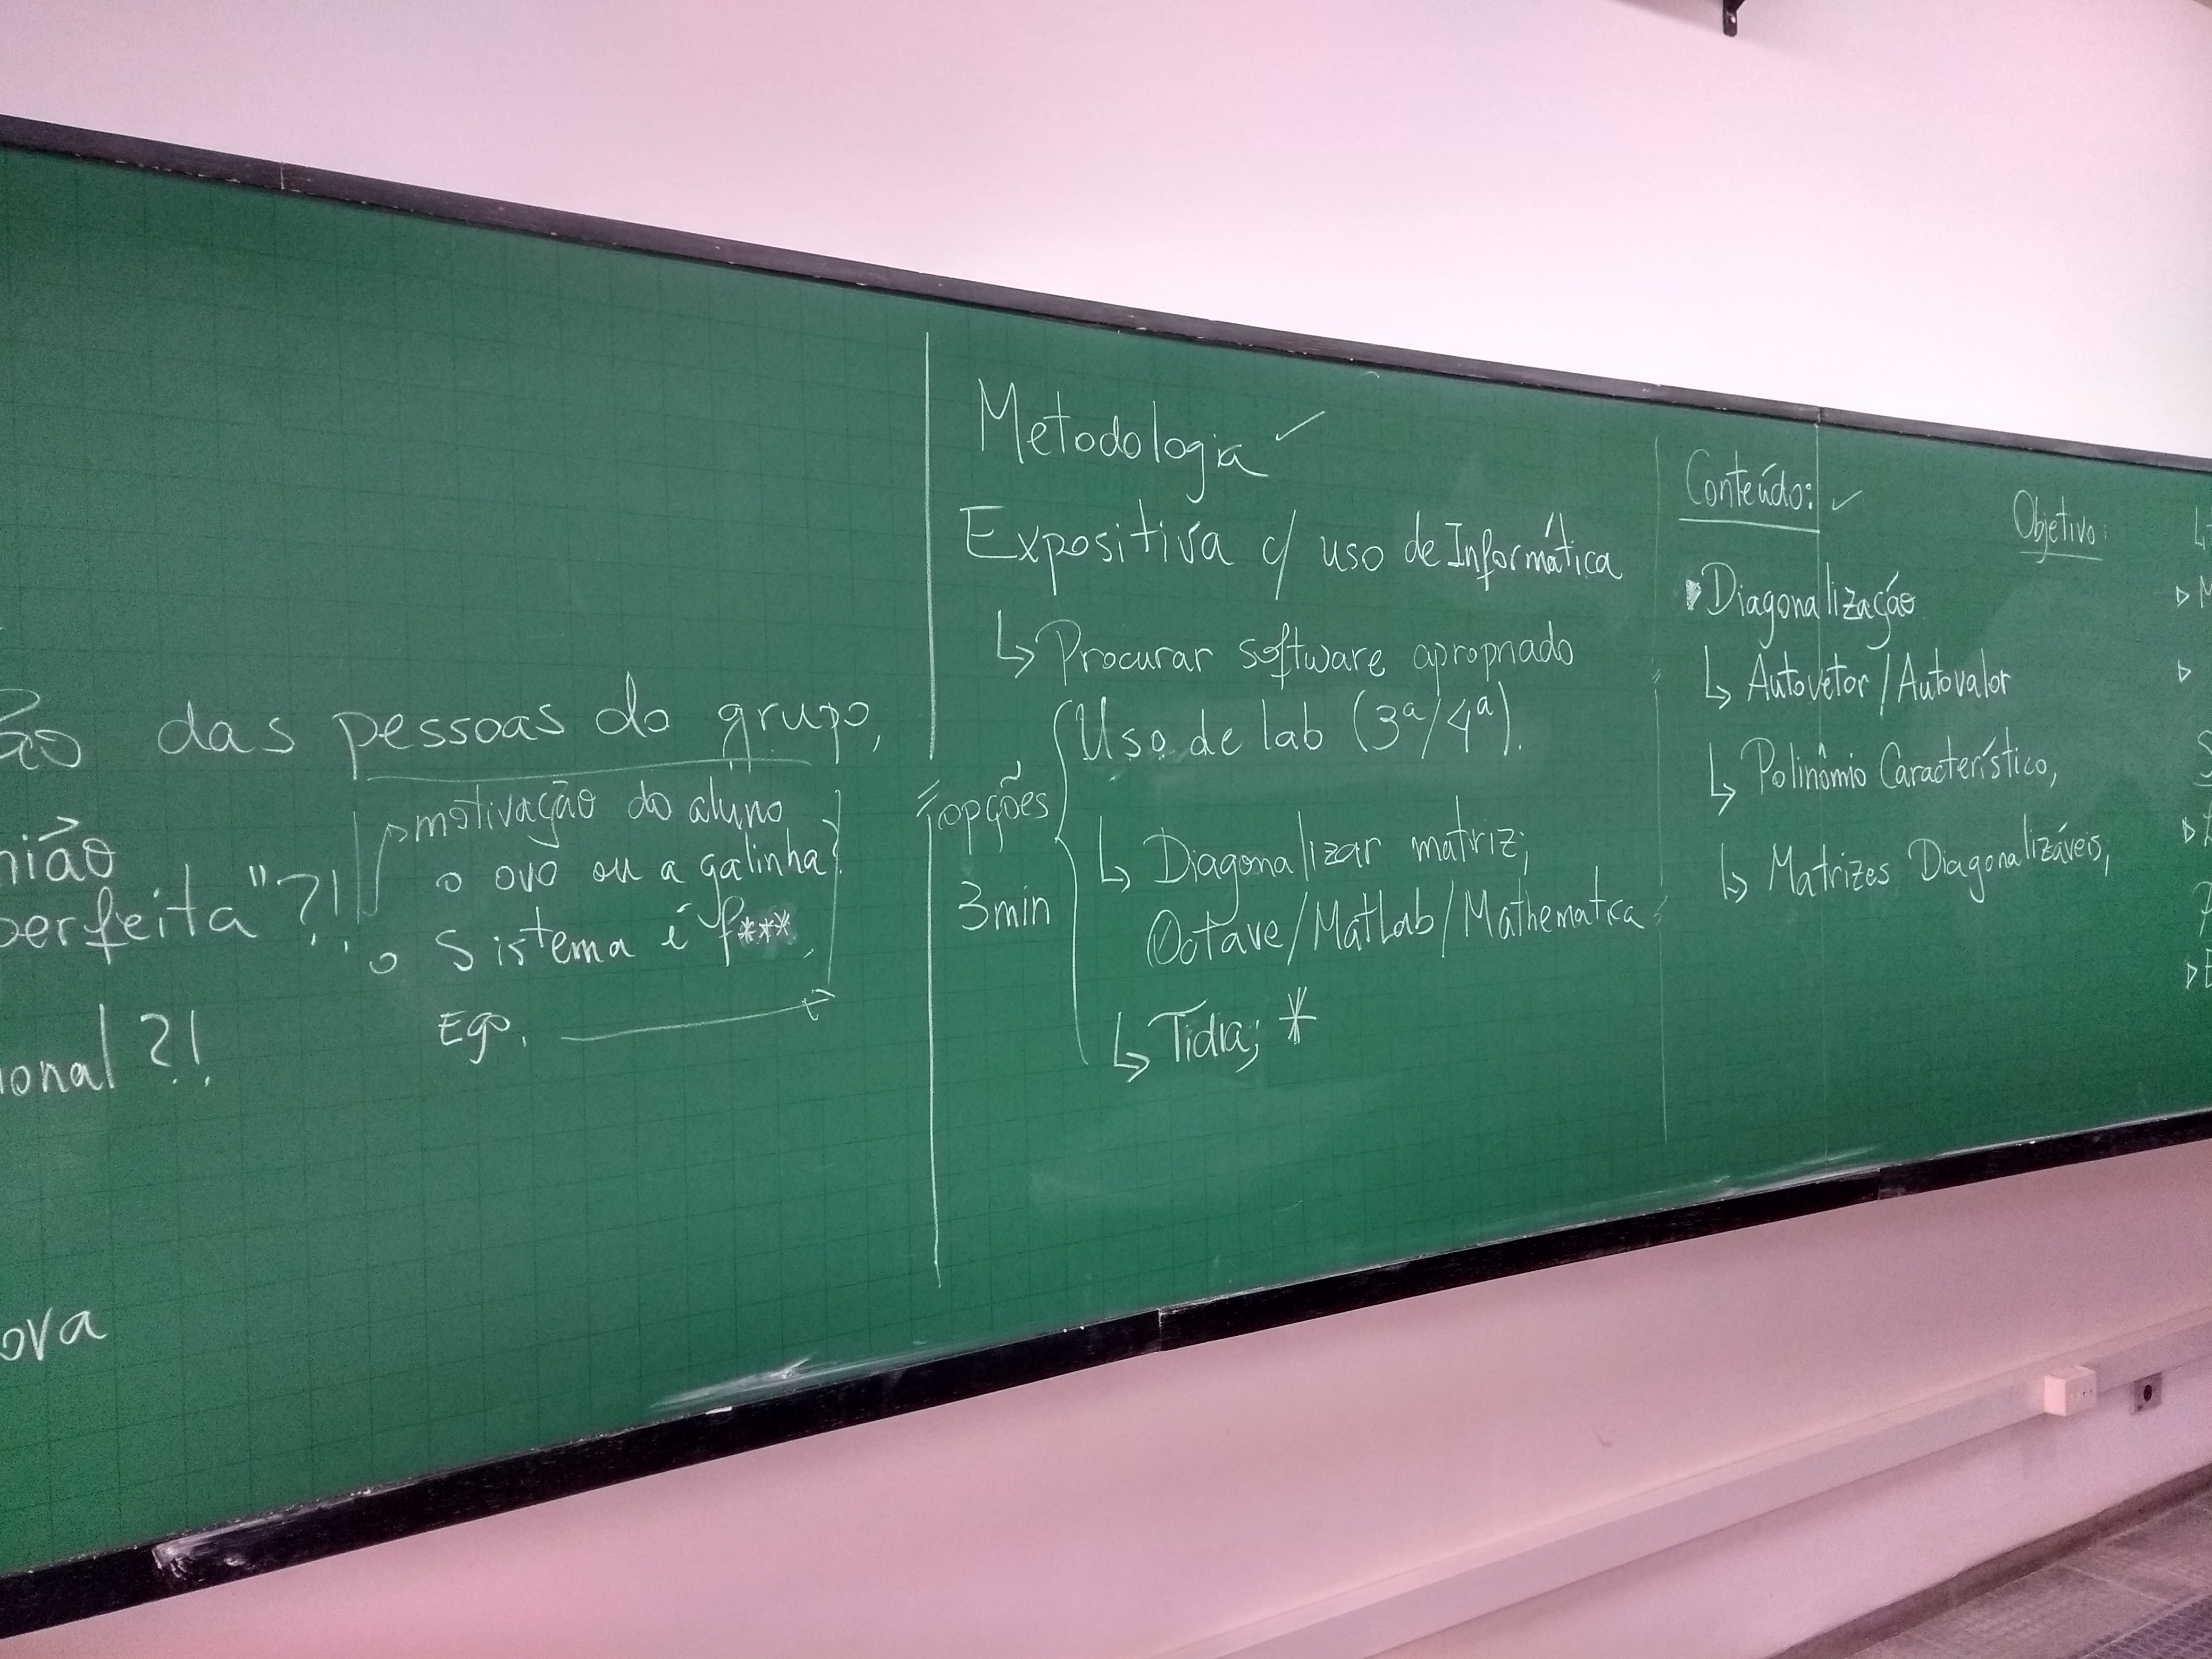 ão das pessoas do grupo,
nião
perfeita"?!
ional?!
ova
motivação do aluno
o ovo ou a galinha?
o Sistema é f***
Ego.
Metodologia ✓
Expositiva c/ uso de Informática
↳ Procurar software apropriado
opções
3min
Uso de lab (3ª/4ª).
↳ Diagonalizar matriz;
Octave/MatLab/Mathematica
↳ Tidia; *
Conteúdo: ✓
Diagonalização
↳ Autovetor/Autovalor
↳ Polinômio Característico,
↳ Matrizes Diagonalizáveis,
Objetivo: